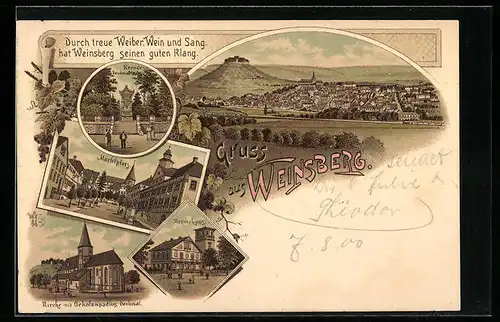 Durch treue Weiber, Wein und Sang.
hat Weinsberg seinen guten Klang.
Kerner
Denkmal
Marktplatz
Gruss
aus WEINSBERG.
sendet
Theodor
7.8.00
Kernerhaus
Kirche mit Oekolampadius Denkmal.